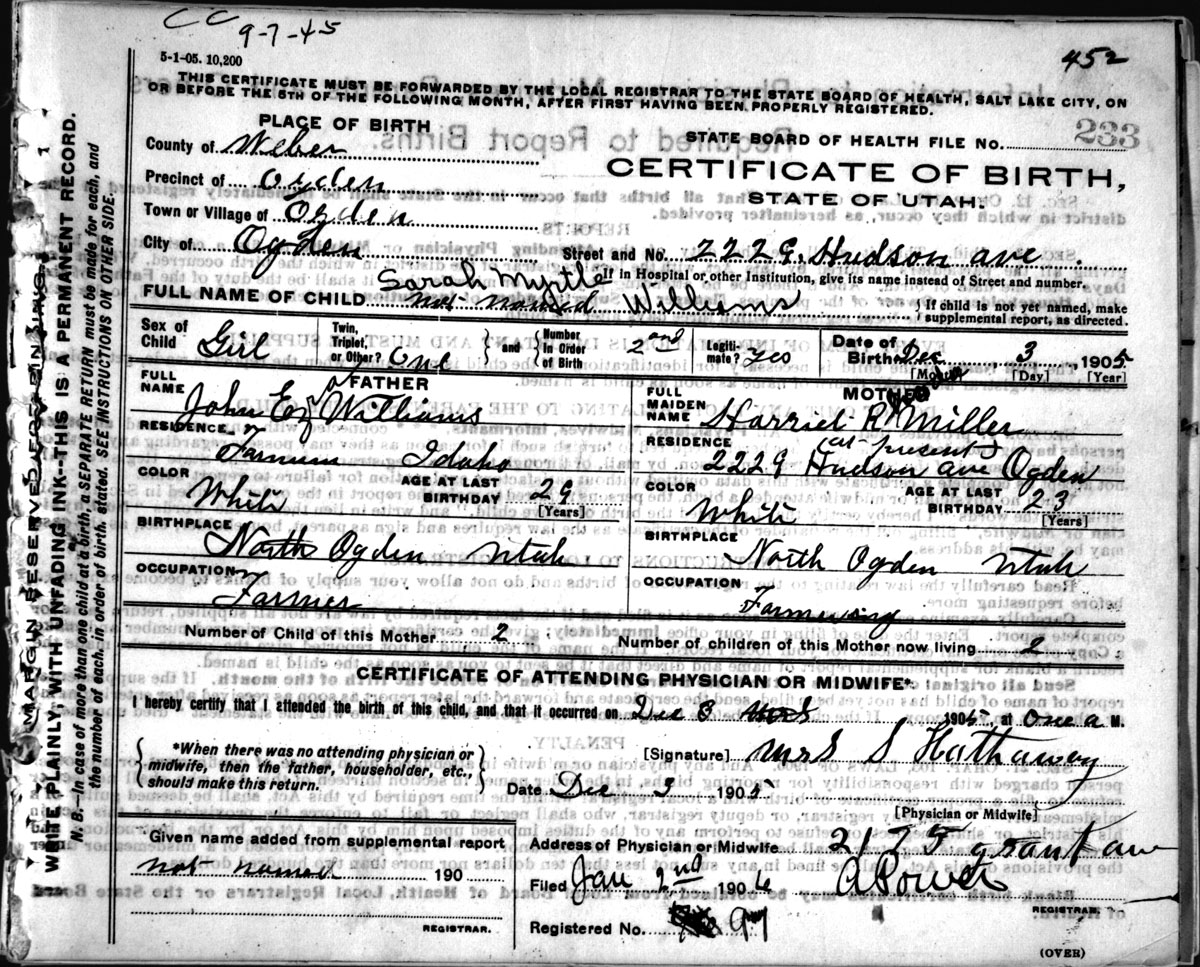 CC
9-7-45
5-1-05. 10,200
452
THIS CERTIFICATE MUST BE FORWARDED BY THE LOCAL REGISTRAR TO THE STATE BOARD OF HEALTH, SALT LAKE CITY, ON
OR BEFORE THE 5TH OF THE FOLLOWING MONTH, AFTER FIRST HAVING BEEN PROPERLY REGISTERED.
PLACE OF BIRTH
STATE BOARD OF HEALTH FILE NO. 233
County of Weber
CERTIFICATE OF BIRTH,
Precinct of Ogden
STATE OF UTAH.
Town or Village of Ogden
City of Ogden Street and No. 2229, Hudson ave.
If in Hospital or other Institution, give its name instead of Street and number.
Sarah Myrtle
FULL NAME OF CHILD not named Williams { If child is not yet named, make supplemental report, as directed.
Sex of Child Girl Twin, Triplet, or Other? One { and } Number in Order of Birth 2nd Legiti-mate? Yes Date of Birth Dec 3 1905
[Month] [Day] [Year]
FATHER
FULL NAME John Williams
RESIDENCE Farnum Idaho
COLOR White AGE AT LAST BIRTHDAY 29
[Years]
BIRTHPLACE North Ogden Utah
OCCUPATION Farmer
MOTHER
FULL MAIDEN NAME Harriet R Miller
RESIDENCE (at present)
2229 Hudson ave Ogden
COLOR White AGE AT LAST BIRTHDAY 23
[Years]
BIRTHPLACE North Ogden Utah
OCCUPATION
Number of Child of this Mother 2 Number of children of this Mother now living 2
CERTIFICATE OF ATTENDING PHYSICIAN OR MIDWIFE*
I hereby certify that I attended the birth of this child, and that it occurred on Dec 3 1905, at One a M.
{ *When there was no attending physician or midwife, then the father, householder, etc., should make this return. }
[Signature] Mrs S Hathaway
Date Dec 3 1905
[Physician or Midwife]
Given name added from supplemental report
not named 190
REGISTRAR.
Address of Physician or Midwife 2175 grant ave
Filed Jan 2nd 1906 A Power
REGISTRAR.
Registered No. 97
(OVER)
MARGIN RESERVED FOR BINDING
WRITE PLAINLY, WITH UNFADING INK--THIS IS A PERMANENT RECORD.
N. B.--In case of more than one child at a birth, a SEPARATE RETURN must be made for each, and
the number of each, in order of birth, stated. SEE INSTRUCTIONS ON OTHER SIDE.